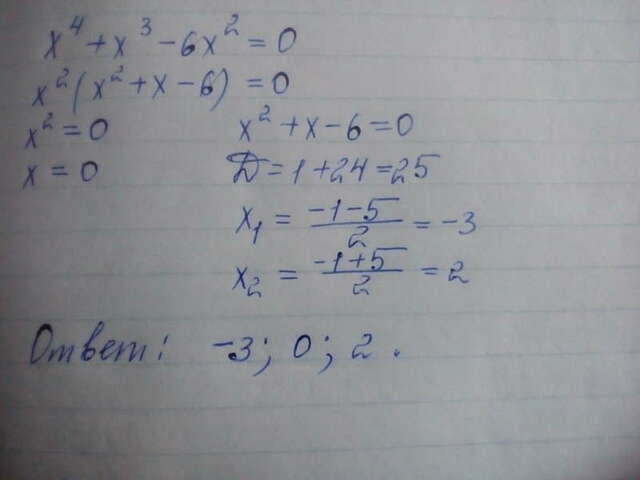 x⁴ + x³ − 6x² = 0
x² (x² + x − 6) = 0
x² = 0 x² + x − 6 = 0
x = 0 D = 1 + 24 = 25
x₁ = (−1−5)/2 = −3
x₂ = (−1+5)/2 = 2
Ответ: −3; 0; 2.